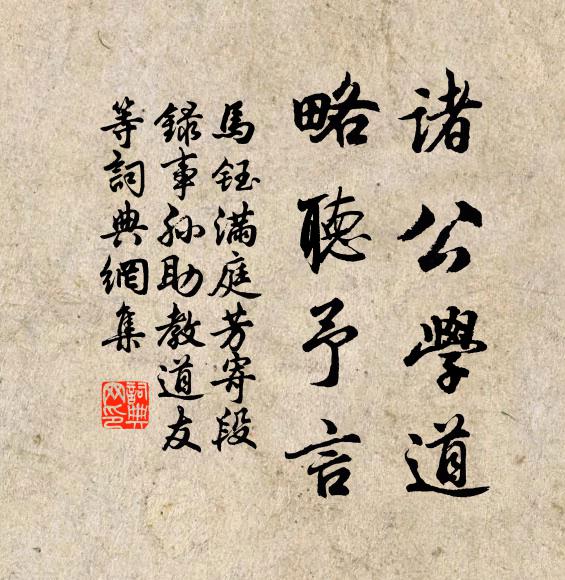 諸公學道
略聽予言
馬鈺滿庭芳寄段
録事孫助教道友
等詞典網集
詞典
网印